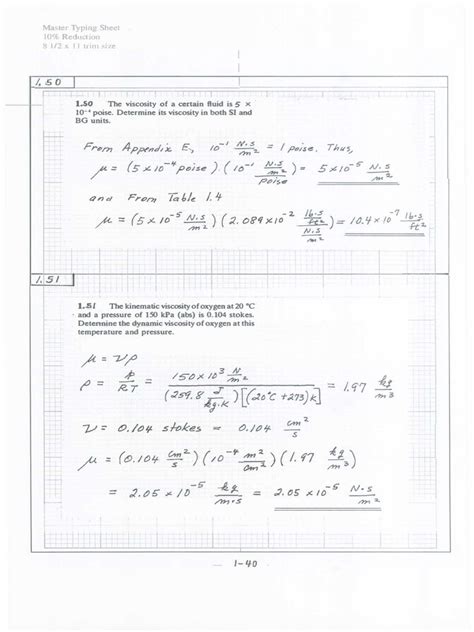 Master Typing Sheet
10% Reduction
8 1/2 x 11 trim size
1.50
1.50 The viscosity of a certain fluid is 5 ×
10⁻⁴ poise. Determine its viscosity in both SI and
BG units.
From Appendix E, 10⁻¹ N·s/m² = 1 poise. Thus,
μ = (5 × 10⁻⁴ poise).(10⁻¹ N·s/m² / poise) = 5 × 10⁻⁵ N·s/m²
and From Table 1.4
μ = (5 × 10⁻⁵ N·s/m²)(2.089 × 10⁻² lb·s/ft² / N·s/m²) = 10.4 × 10⁻⁷ lb·s/ft²
1.51
1.51 The kinematic viscosity of oxygen at 20 °C
and a pressure of 150 kPa (abs) is 0.104 stokes.
Determine the dynamic viscosity of oxygen at this
temperature and pressure.
μ = νρ
ρ = p/RT = 150 × 10³ N/m² / (259.8 J/kg·K)[(20°C + 273)K] = 1.97 kg/m³
ν = 0.104 stokes = 0.104 cm²/s
μ = (0.104 cm²/s)(10⁻⁴ m²/cm²)(1.97 kg/m³)
= 2.05 × 10⁻⁵ kg/m·s = 2.05 × 10⁻⁵ N·s/m²
1-40